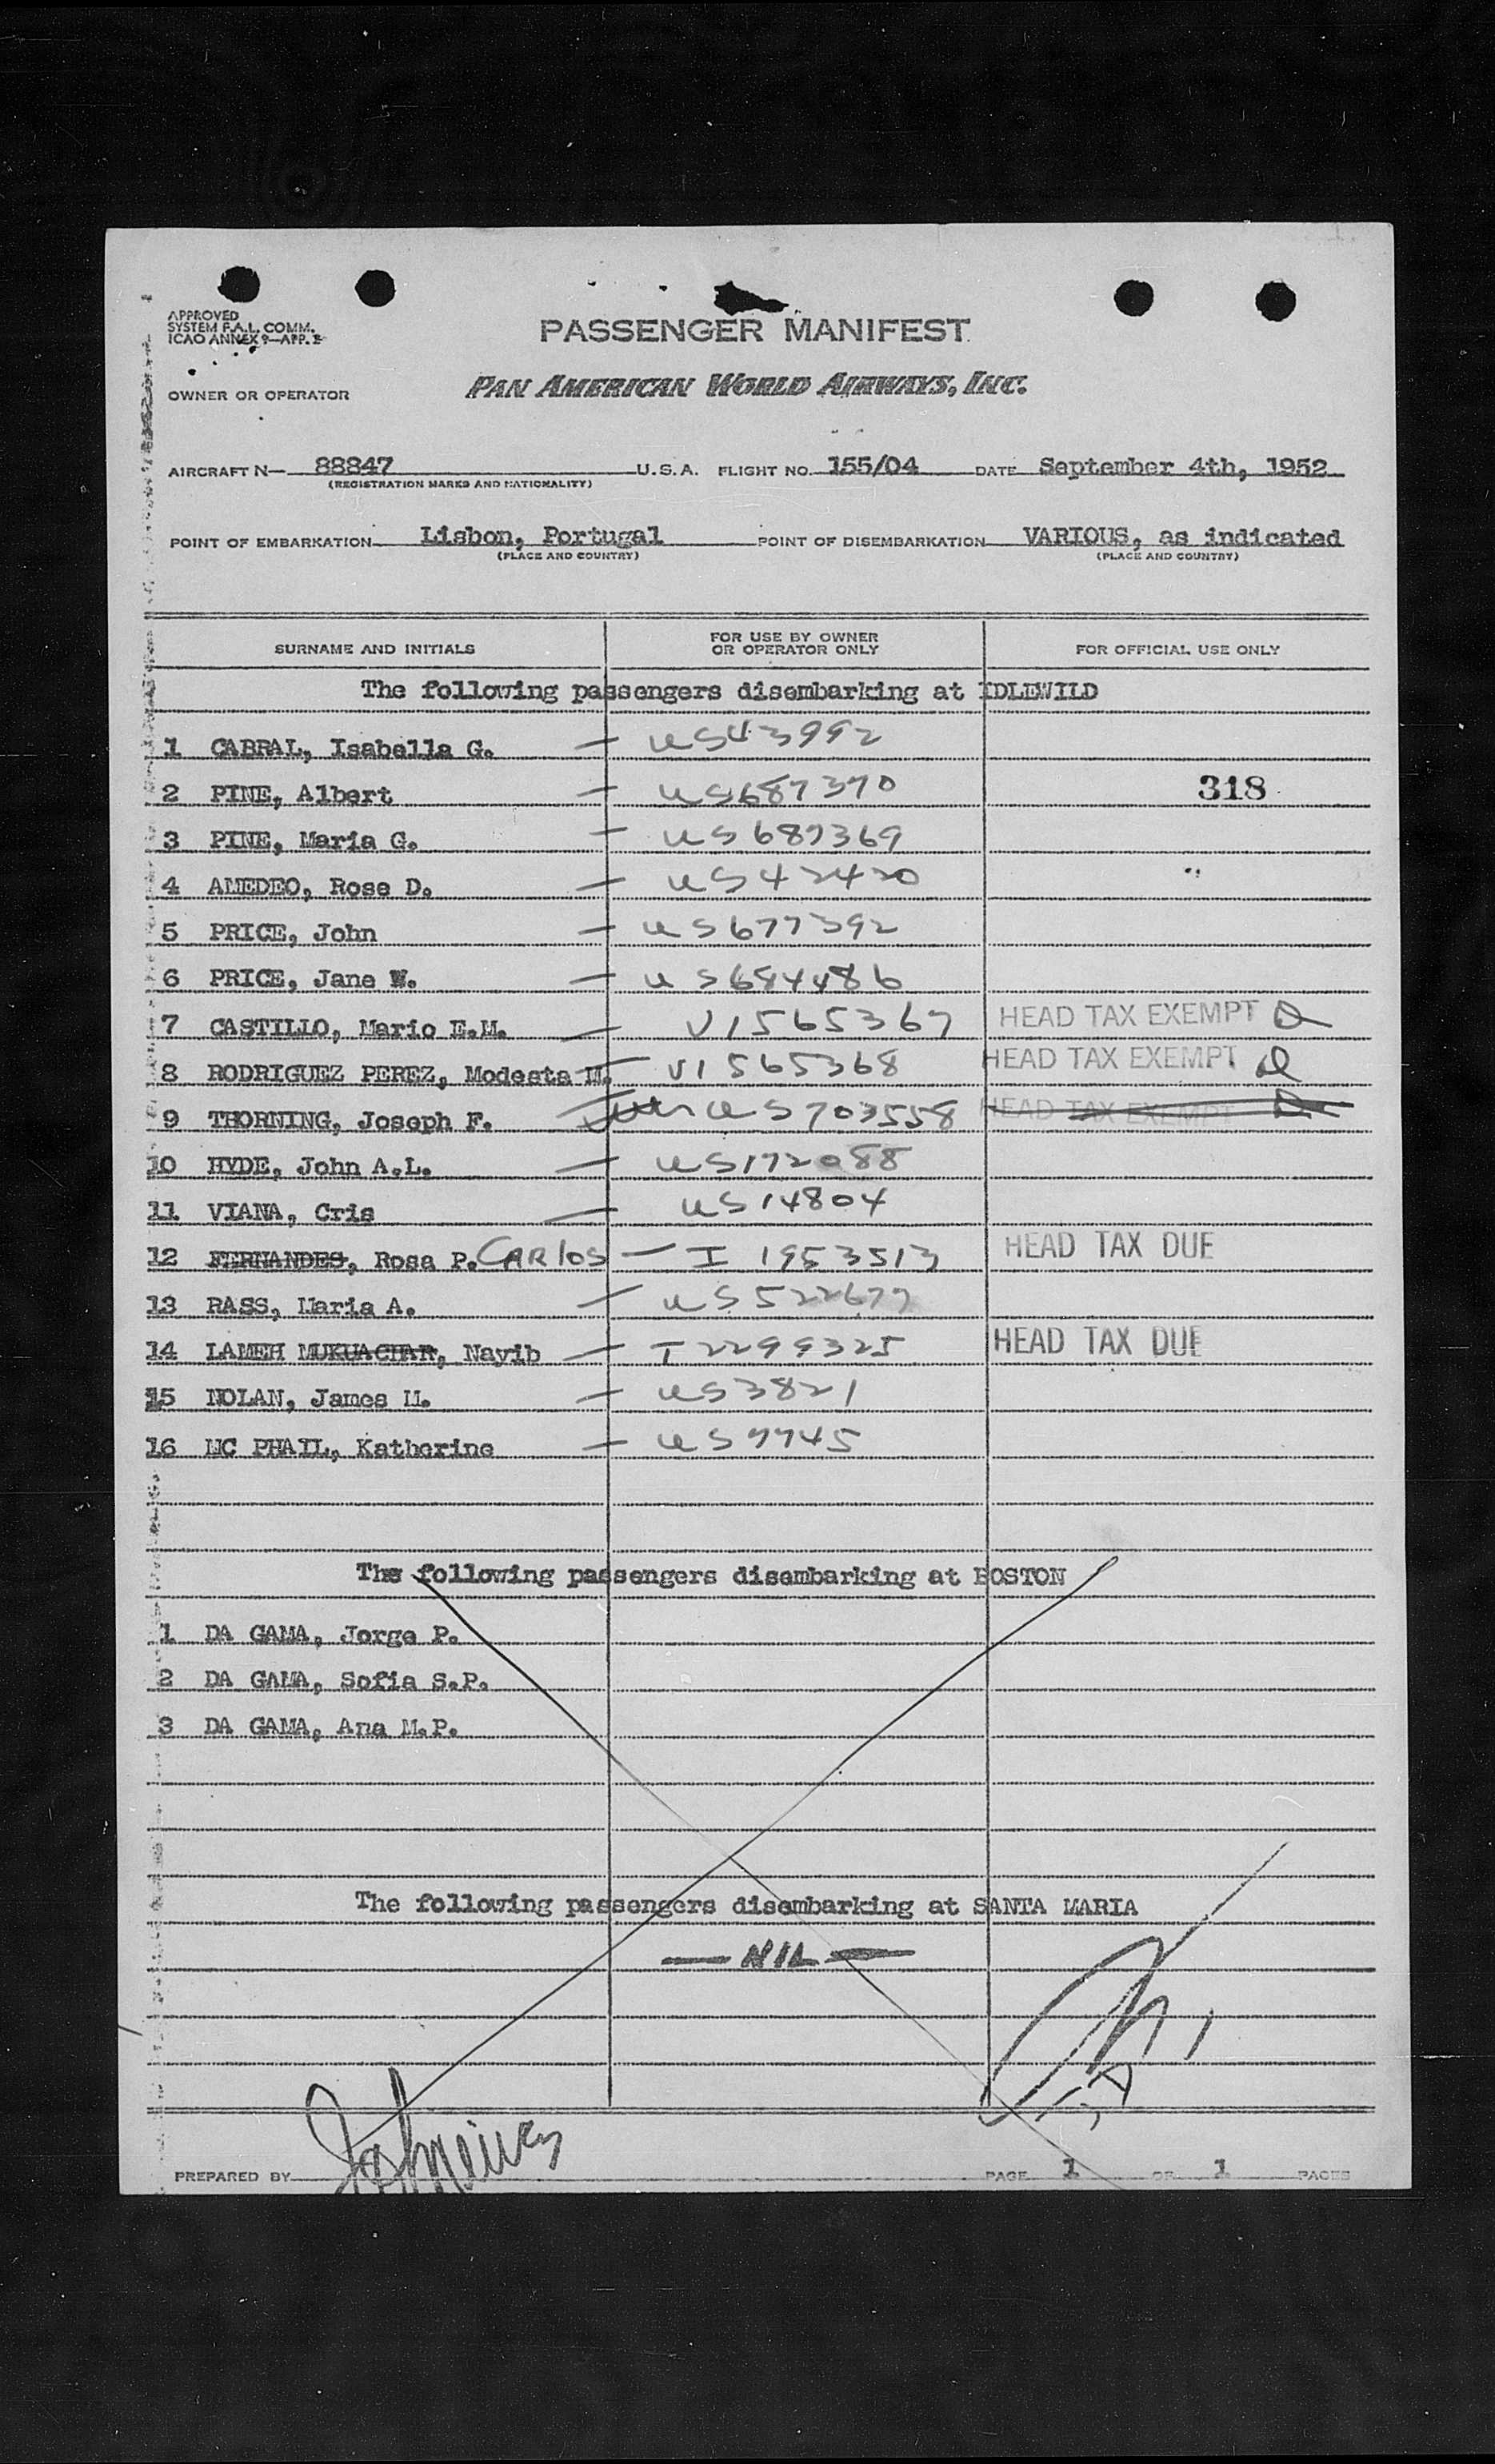 APPROVED
SYSTEM F.A.L. COMM.
ICAO ANNEX 9—APP. 2
PASSENGER MANIFEST
OWNER OR OPERATOR PAN AMERICAN WORLD AIRWAYS, INC.
AIRCRAFT N— 88847 U.S.A. FLIGHT NO. 155/04 DATE September 4th, 1952
(REGISTRATION MARKS AND NATIONALITY)
POINT OF EMBARKATION Lisbon, Portugal POINT OF DISEMBARKATION VARIOUS, as indicated
(PLACE AND COUNTRY) (PLACE AND COUNTRY)
SURNAME AND INITIALS FOR USE BY OWNER OR OPERATOR ONLY FOR OFFICIAL USE ONLY
The following passengers disembarking at IDLEWILD
1 CABRAL, Isabella G. — US43992
2 PINE, Albert — US687370 318
3 PINE, Maria G. — US687369
4 AMEDEO, Rose D. — US42420
5 PRICE, John — US677392
6 PRICE, Jane W. — US684486
7 CASTILLO, Mario E.M. — V1565367 HEAD TAX EXEMPT
8 RODRIGUEZ PEREZ, Modesta M. — V1565368 HEAD TAX EXEMPT
9 THORNING, Joseph F. US703558 HEAD TAX EXEMPT
10 HYDE, John A.L. — US172088
11 VIANA, Cris — US14804
12 FERNANDES, Rosa P. CARlos — I 1953513 HEAD TAX DUE
13 RASS, Maria A. — US522677
14 LAMEH MUKUACHAR, Nayib — I2299325 HEAD TAX DUE
15 NOLAN, James M. — US3821
16 MC PHAIL, Katherine — US9945
The following passengers disembarking at BOSTON
1 DA GAMA, Jorge P.
2 DA GAMA, Sofia S.P.
3 DA GAMA, Ana M.P.
The following passengers disembarking at SANTA MARIA
— NIL —
PREPARED BY PAGE 1 OF 1 PAGES